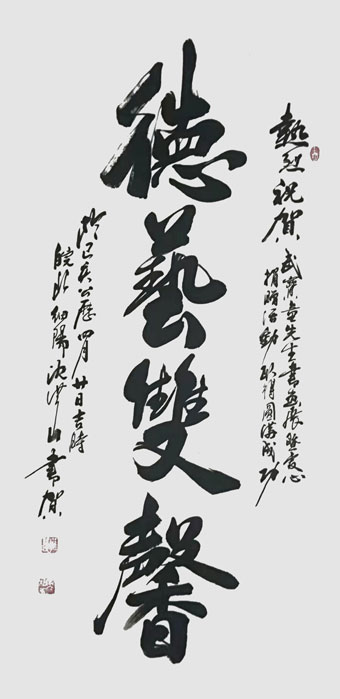 熱烈祝賀武先生書畫展暨愛心
捐贈活動取得圓滿成功
德藝雙馨
於己亥公歷四月廿日吉時
皖北細陽沈山書賀